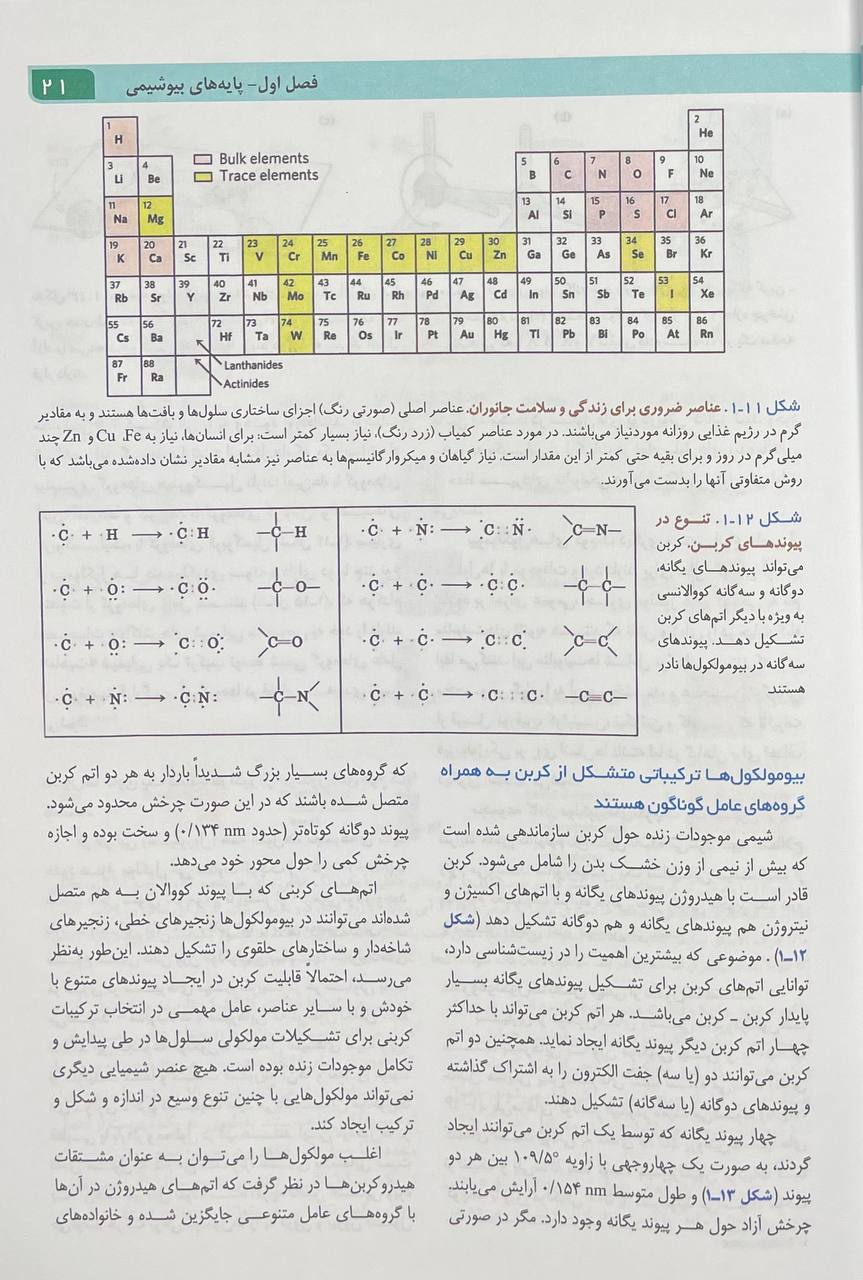 فصل اول- پایه‌های بیوشیمی ۲۱
Bulk elements
Trace elements
1 H 2 He
3 Li 4 Be 5 B 6 C 7 N 8 O 9 F 10 Ne
11 Na 12 Mg 13 Al 14 Si 15 P 16 S 17 Cl 18 Ar
19 K 20 Ca 21 Sc 22 Ti 23 V 24 Cr 25 Mn 26 Fe 27 Co 28 Ni 29 Cu 30 Zn 31 Ga 32 Ge 33 As 34 Se 35 Br 36 Kr
37 Rb 38 Sr 39 Y 40 Zr 41 Nb 42 Mo 43 Tc 44 Ru 45 Rh 46 Pd 47 Ag 48 Cd 49 In 50 Sn 51 Sb 52 Te 53 I 54 Xe
55 Cs 56 Ba 72 Hf 73 Ta 74 W 75 Re 76 Os 77 Ir 78 Pt 79 Au 80 Hg 81 Tl 82 Pb 83 Bi 84 Po 85 At 86 Rn
87 Fr 88 Ra
Lanthanides
Actinides
شکل ۱۱-۱. عناصر ضروری برای زندگی و سلامت جانوران. عناصر اصلی (صورتی رنگ) اجزای ساختاری سلول‌ها و بافت‌ها هستند و به مقادیر
گرم در رژیم غذایی روزانه موردنیاز می‌باشند. در مورد عناصر کمیاب (زرد رنگ)، نیاز بسیار کمتر است: برای انسان‌ها، نیاز به Cu ،Fe و Zn چند
میلی‌گرم در روز و برای بقیه حتی کمتر از این مقدار است. نیاز گیاهان و میکروارگانیسم‌ها به عناصر نیز مشابه مقادیر نشان داده‌شده می‌باشد که با
روش متفاوتی آنها را بدست می‌آورند.
شکل ۱۲-۱. تنوع در
پیوندهای کربن. کربن
می‌تواند پیوندهای یگانه،
دوگانه و سه‌گانه کووالانسی
به ویژه با دیگر اتم‌های کربن
تشکیل دهد. پیوندهای
سه‌گانه در بیومولکول‌ها نادر
هستند
·C· + ·H → ·C:H –C–H
·C· + ·O: → ·C:O· –C–O–
·C· + ·O: → C::O C=O
·C· + ·N: → ·C:N: –C–N
·C· + ·N: → C::N· C=N–
·C· + ·C· → ·C:C· –C–C–
·C· + ·C· → C::C C=C
·C· + ·C· → ·C:::C· –C≡C–
بیومولکول‌ها ترکیباتی متشکل از کربن به همراه
گروه‌های عامل گوناگون هستند
شیمی موجودات زنده حول کربن سازماندهی شده است
که بیش از نیمی از وزن خشک بدن را شامل می‌شود. کربن
قادر است با هیدروژن پیوندهای یگانه و با اتم‌های اکسیژن و
نیتروژن هم پیوندهای یگانه و هم دوگانه تشکیل دهد (شکل
۱۲-۱). موضوعی که بیشترین اهمیت را در زیست‌شناسی دارد،
توانایی اتم‌های کربن برای تشکیل پیوندهای یگانه بسیار
پایدار کربن - کربن می‌باشد. هر اتم کربن می‌تواند با حداکثر
چهار اتم کربن دیگر پیوند یگانه ایجاد نماید. همچنین دو اتم
کربن می‌توانند دو (یا سه) جفت الکترون را به اشتراک گذاشته
و پیوندهای دوگانه (یا سه‌گانه) تشکیل دهند.
چهار پیوند یگانه که توسط یک اتم کربن می‌توانند ایجاد
گردند، به صورت یک چهاروجهی با زاویه ۱۰۹/۵° بین هر دو
پیوند (شکل ۱۳-۱) و طول متوسط ۰/۱۵۴ nm آرایش می‌یابند.
چرخش آزاد حول هر پیوند یگانه وجود دارد. مگر در صورتی
که گروه‌های بسیار بزرگ شدیداً باردار به هر دو اتم کربن
متصل شده باشند که در این صورت چرخش محدود می‌شود.
پیوند دوگانه کوتاه‌تر (حدود ۰/۱۳۴ nm) و سخت بوده و اجازه
چرخش کمی را حول محور خود می‌دهد.
اتم‌های کربنی که با پیوند کووالان به هم متصل
شده‌اند می‌توانند در بیومولکول‌ها زنجیرهای خطی، زنجیرهای
شاخه‌دار و ساختارهای حلقوی را تشکیل دهند. این‌طور به‌نظر
می‌رسد، احتمالاً قابلیت کربن در ایجاد پیوندهای متنوع با
خودش و با سایر عناصر، عامل مهمی در انتخاب ترکیبات
کربنی برای تشکیلات مولکولی سلول‌ها در طی پیدایش و
تکامل موجودات زنده بوده است. هیچ عنصر شیمیایی دیگری
نمی‌تواند مولکول‌هایی با چنین تنوع وسیع در اندازه و شکل و
ترکیب ایجاد کند.
اغلب مولکول‌ها را می‌توان به عنوان مشتقات
هیدروکربن‌ها در نظر گرفت که اتم‌های هیدروژن در آن‌ها
با گروه‌های عامل متنوعی جایگزین شده و خانواده‌های